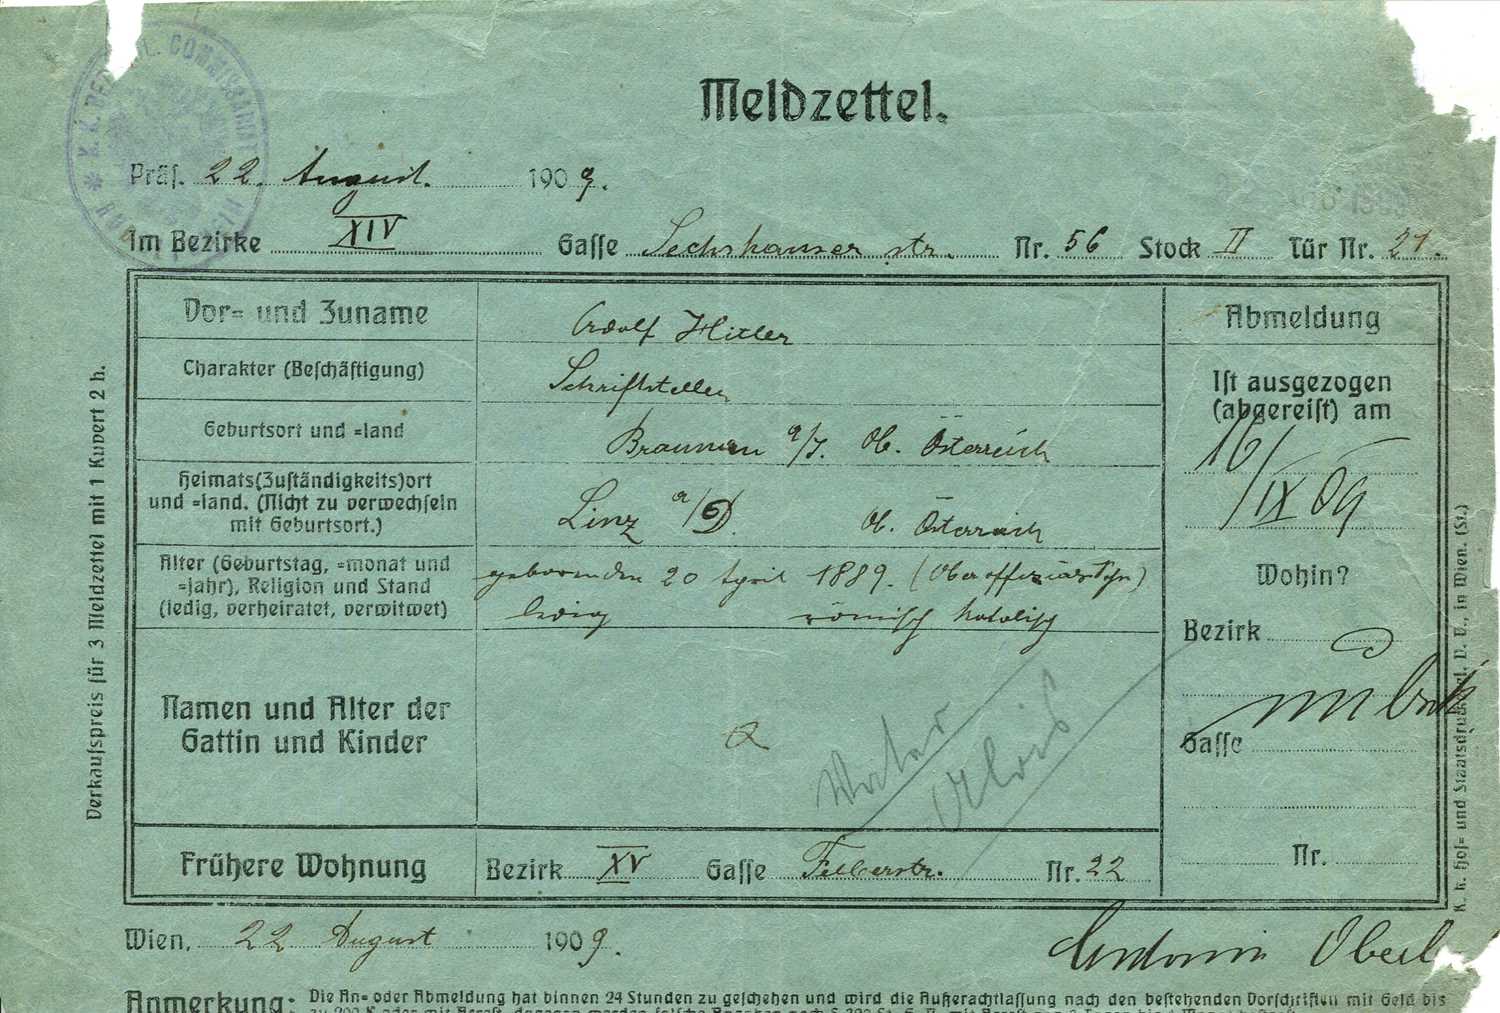 K. K. BEZ. POL. COMMISSARIAT
Meldzettel.
Präs. 22. August. 1909.
Im Bezirke XIV Gasse Sechshauser str. Nr. 56 Stock II Tür Nr. 21.
Vor= und Zuname
Adolf Hitler
Charakter (Beschäftigung)
Schriftsteller
Geburtsort und =land
Braunau a/I. Ob. Österreich
Heimats(Zuständigkeits)ort
und =land. (Nicht zu verwechseln
mit Geburtsort.)
Linz a/D. Ob. Österreich
Alter (Geburtstag, =monat und
=jahr), Religion und Stand
(ledig, verheiratet, verwitwet)
geboren den 20 April 1889. (Oberoffizialssohn)
ledig römisch katolisch
Namen und Alter der
Gattin und Kinder
Vater
Alois
Frühere Wohnung
Bezirk XV Gasse Felberstr. Nr. 22
Abmeldung
Ist ausgezogen
(abgereist) am
16/
/IX 09
Wohin?
Bezirk
Gasse
Nr.
Wien, 22 August 1909.
Antonia Oberl
Anmerkung: Die An= oder Abmeldung hat binnen 24 Stunden zu geschehen und wird die Außerachtlassung nach den bestehenden Vorschriften mit Geld bis
Verkaufspreis für 3 Meldzettel mit 1 Kuvert 2 h.
K. k. Hof= und Staatsdruckerei, V. V., in Wien. (St.)